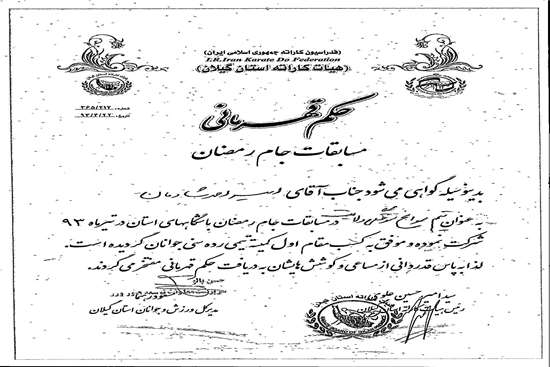 (فدراسیون کاراته جمهوری اسلامی ایران)
I.R.Iran Karate Do Federation
(هیئات کاراته استان گیلان)
شماره: ۳۶۵/۳۱۷
حکم قهرمانی
مسابقات جام رمضان
بدینوسیله گواهی می شود جناب آقای
به عنوان تیم در مسابقات جام رمضان باشگاههای استان در تیر ماه ۹۳
شرکت نموده و موفق به کسب مقام اول کمیته تیمی رده سنی جوانان گردیده است.
لذا به پاس قدردانی از مساعی و کوشش ایشان به دریافت حکم قهرمانی مفتخر می گردند.
سید حسین
رئیس هیات کاراته استان گیلان
مدیر کل ورزش و جوانان استان گیلان